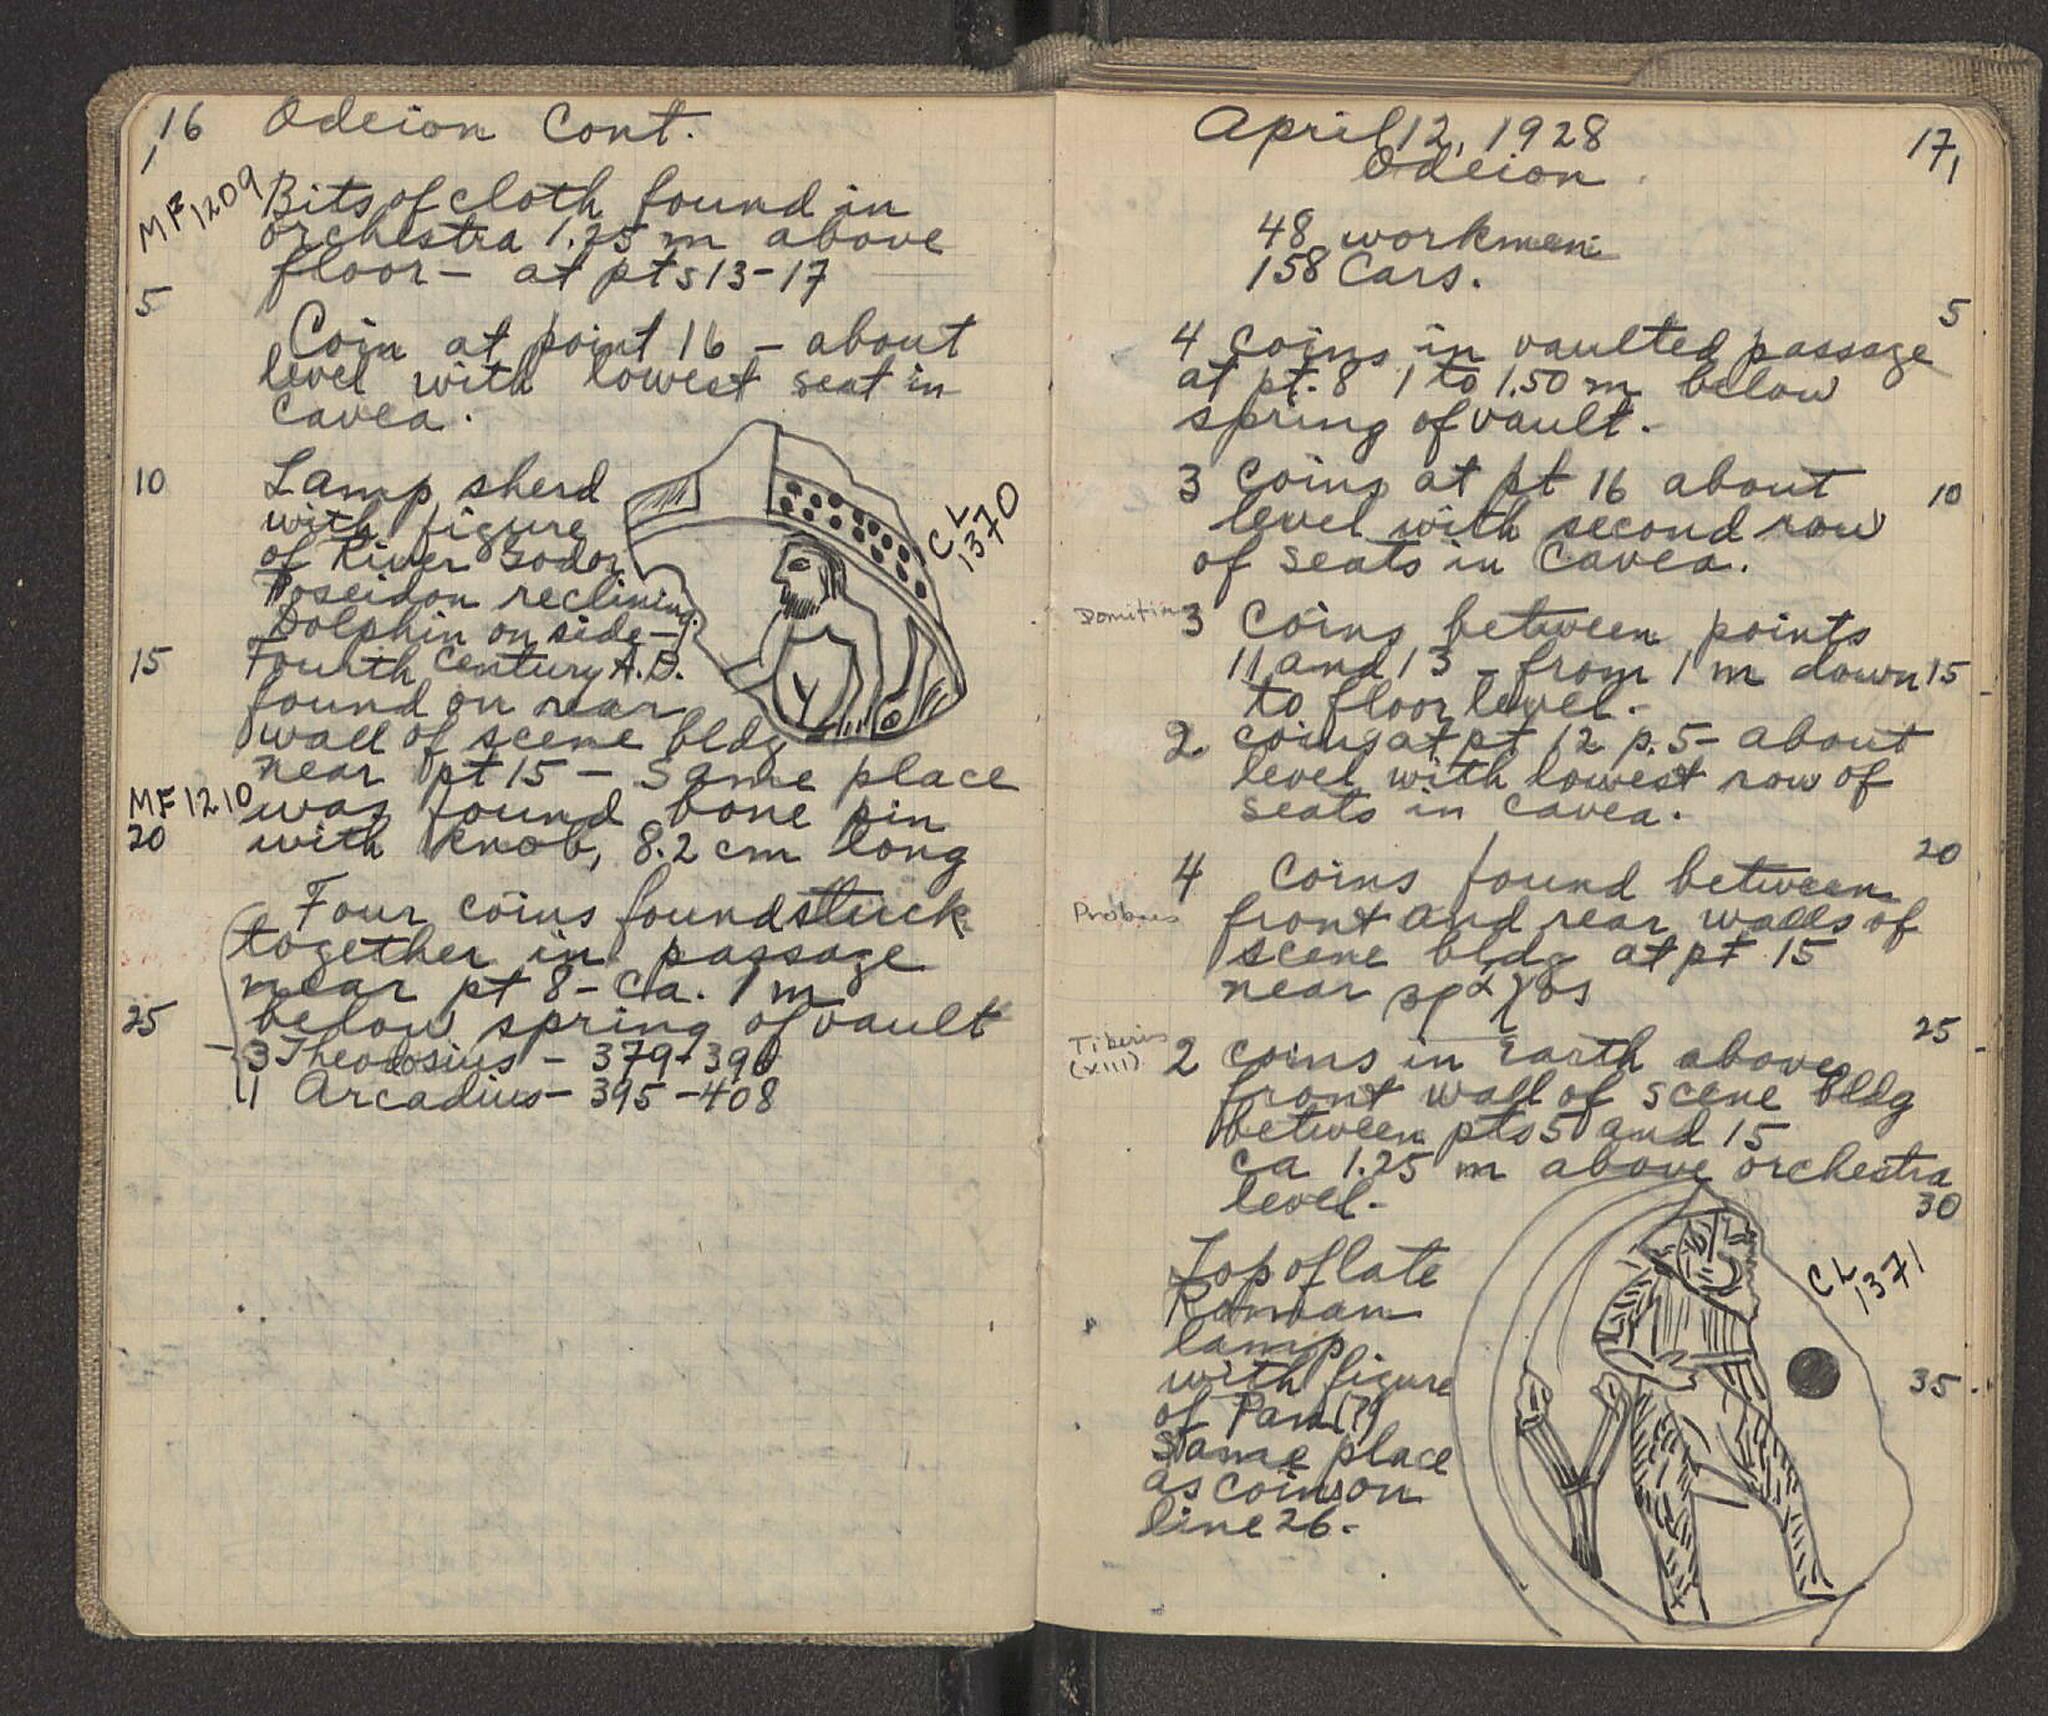 16 Odeion Cont.
MF 1209
Bits of cloth found in
orchestra 1.25 m above
floor – at pts 13-17
5
Coin at point 16 – about
level with lowest seat in
cavea.
10
Lamp sherd
with figure
of River God or
Poseidon reclining.
Dolphin on side –
15
Fourth Century A.D.
found on rear
wall of scene bldg
near pt 15 – same place
MF 1210
was found bone pin
20
with knob, 8.2 cm long
CL
1370
Four coins found stuck
together in passage
near pt 8 – ca. 1 m
25
below spring of vault
3 Theodosius – 379-390
1 Arcadius – 395-408
April 12, 1928
17
Odeion
48 workmen
158 Cars.
5
4 coins in vaulted passage
at pt. 8 1 to 1.50 m below
spring of vault.
3 coins at pt 16 about
10
level with second row
of seats in Cavea.
3 coins between points
11 and 13 – from 1 m down
15
to floor level.
2 coins at pt 12 p. 5 – about
level with lowest row of
seats in cavea.
20
4 coins found between
Probus
front and rear walls of
scene bldg at pt 15
near
25
Tiberius
(XIII)
2 coins in earth above
front wall of scene bldg
between pts 5 and 15
ca 1.25 m above orchestra
30
level –
Top of late
Roman
lamp
with figure
of Pan (?)
same place
as coins on
line 26 –
CL
1371
35